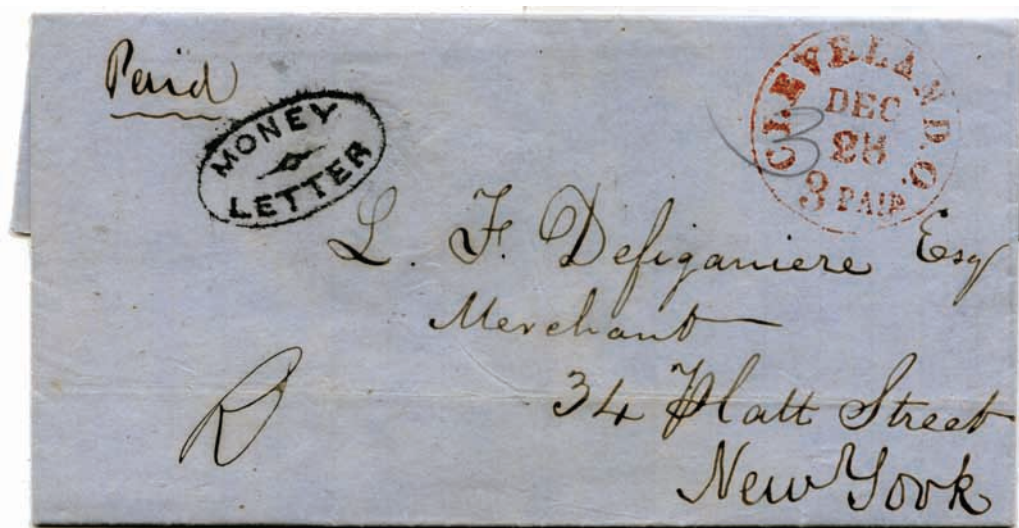 Paid
MONEY
LETTER
CLEVELAND. O.
DEC
28
3 PAID
3
L. F. Defiganiere Esq
Merchant
34 Platt Street
New York
R